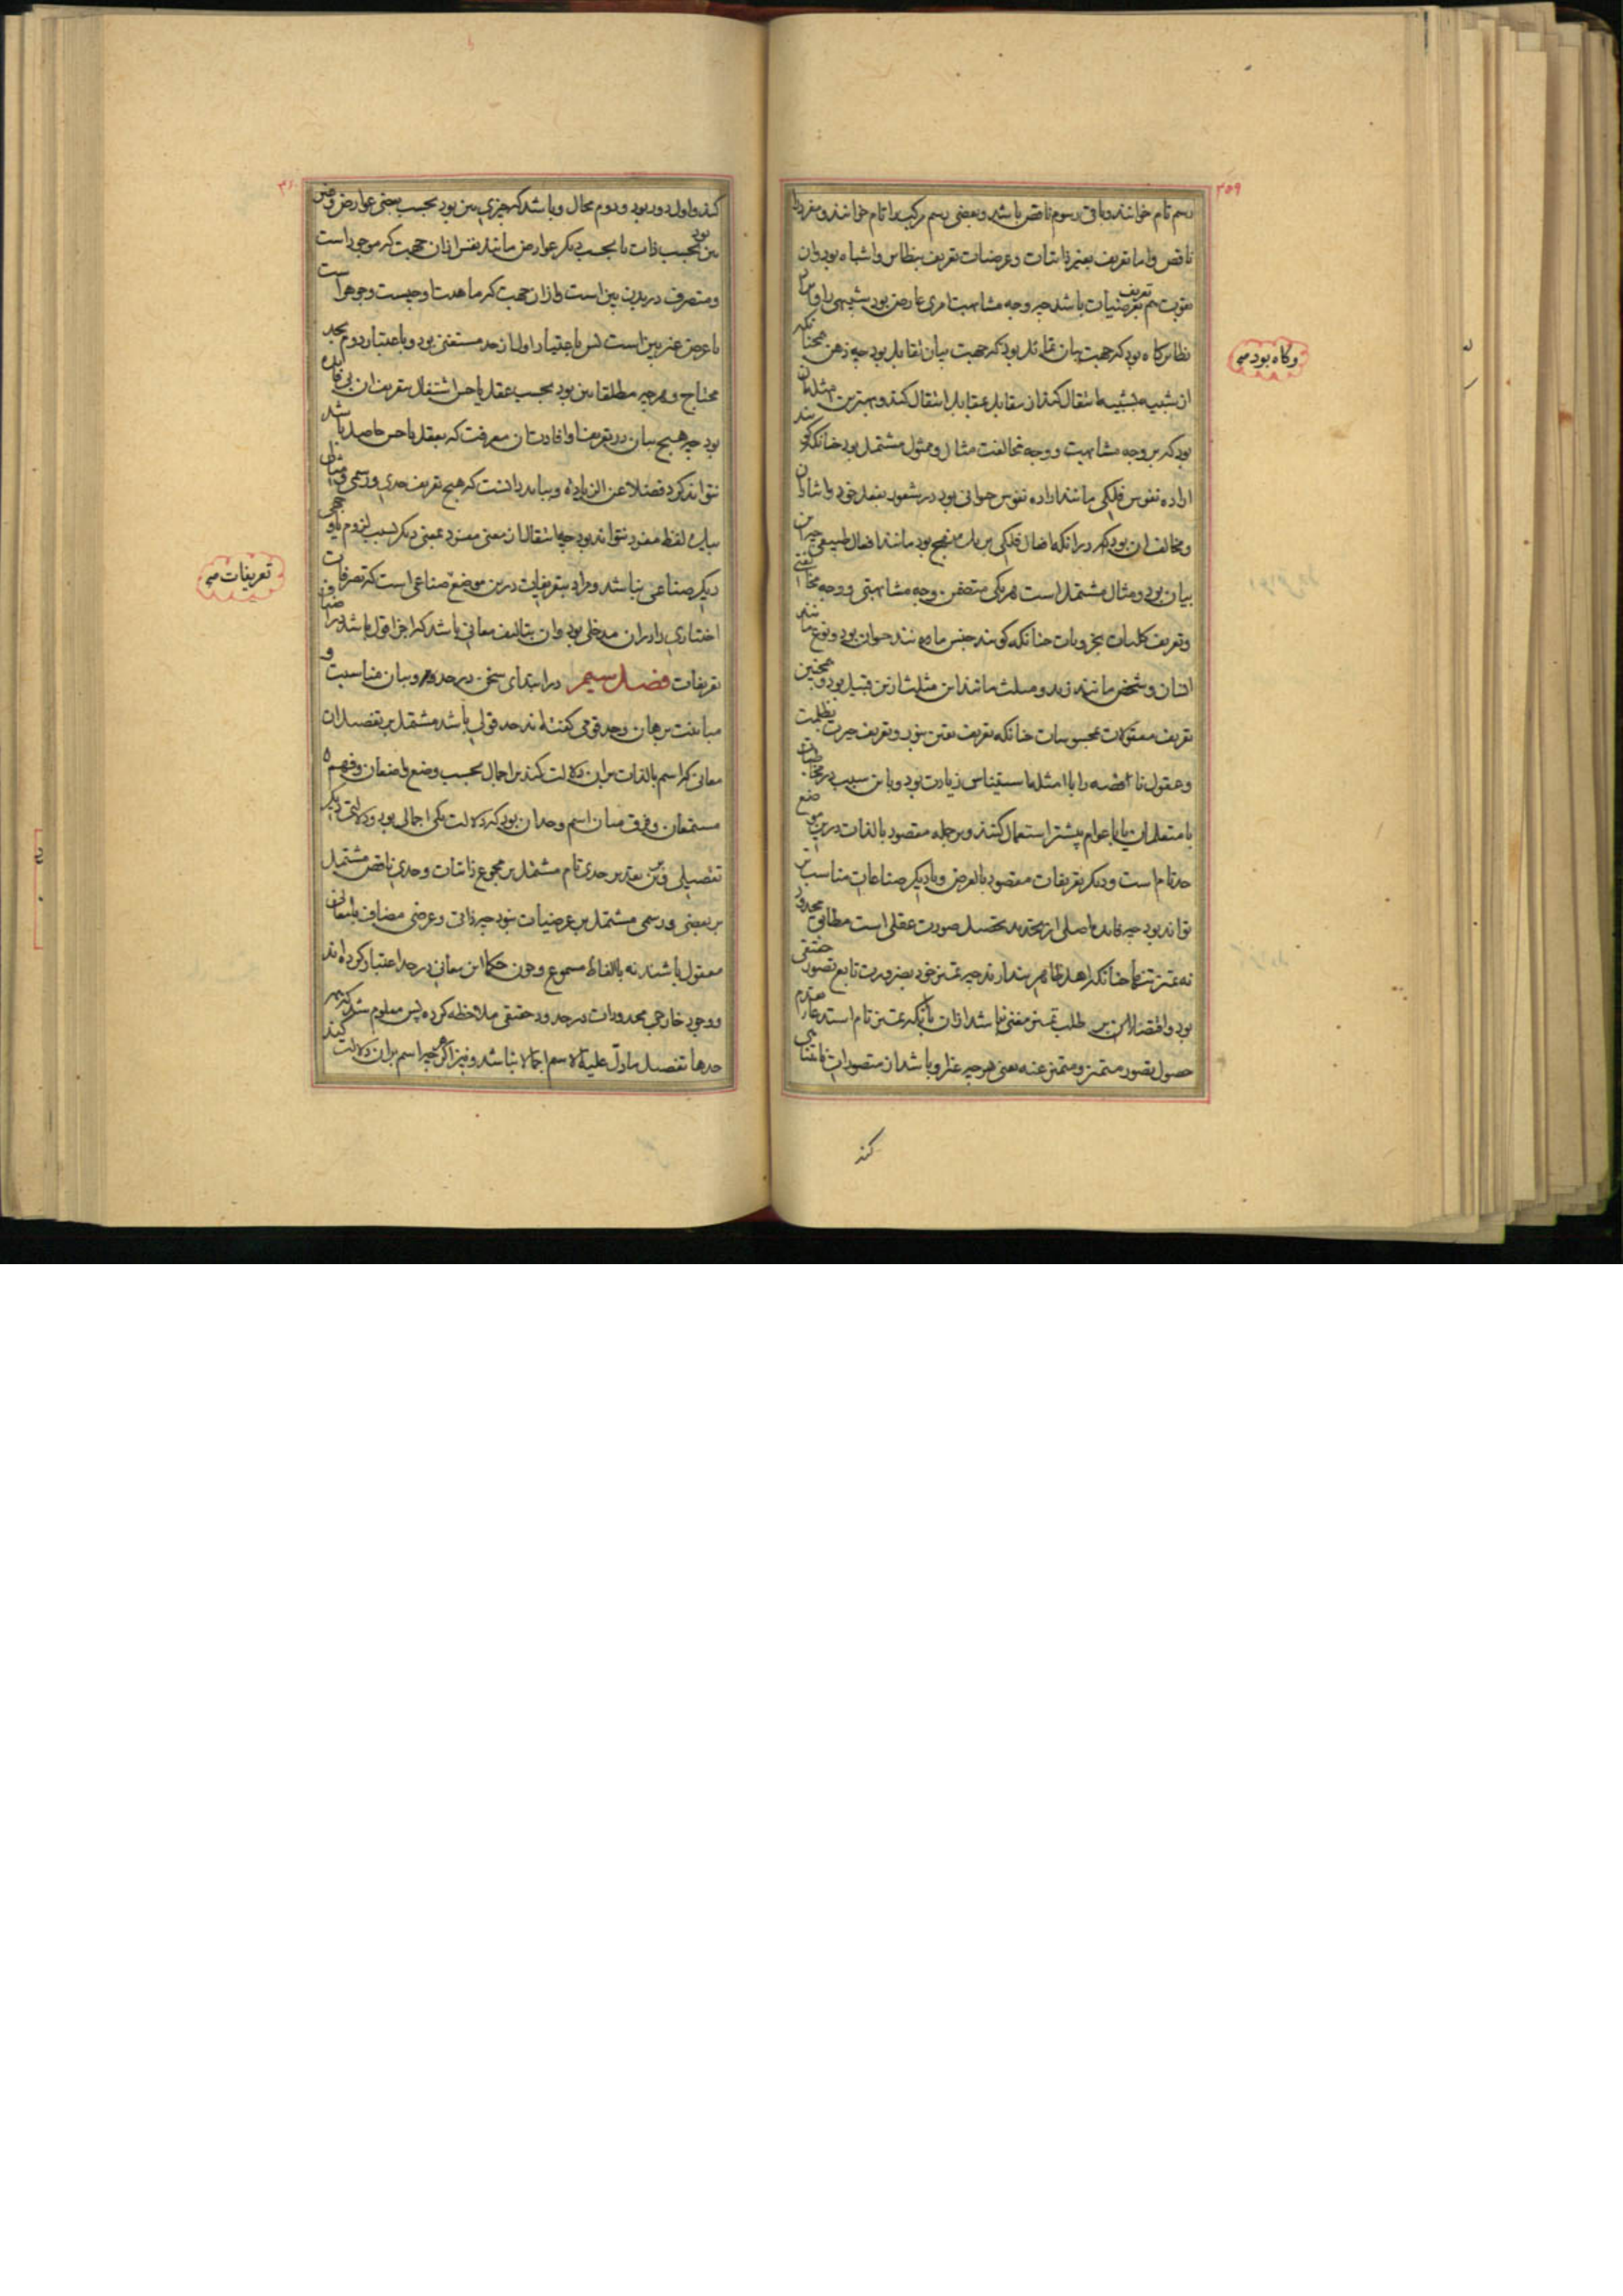 ۳۵۹
رسم تام خوانند و باقی رسوم ناقص باشد و بعضی رسم مرکب را تام خوانند و مفرد را
ناقص و اما تعریف بغیر ذاتیات و عرضیات تعریف بنظایر و اشباه بود و آن
بحقیقت هم تعریف بعرضیات باشد چه وجه مشابهت امری عارض بود شبیهی را و این
نظایر گاه بود که جهت بیان تماثل بود که جهت بیان تقابل بود چه ذهن همچنانکه
از شبیه بشبیه انتقال کند از مقابل بمقابل انتقال کند و بهترین مثلها آن
بود که بر وجه مشابهت و وجه مخالفت مثال و ممثول مشتمل بود چنانکه گویند
اراده نفوس فلکی مانند اراده نفوس حیوانی بود در شعور بفعل خود و اشاره آن
و مخالف آن بود که در آنکه افعال فلکی بر یک منهج بود مانند افعال طبیعی چه این
بیان بدو مثال مشتمل است هر یکی متضمن وجه مشابهتی و وجه مخالفتی
و تعریف کلیات بجزویات چنانکه گویند جنس مانند حیوان بود و نوع مانند
انسان و شخص مانند زید و مثلث مانند این مثلث ازین قبیل بود و همچنین
تعریف معقولات بمحسوسات چنانکه تعریف یقین بنور و تعریف حیرت بظلمت
و عقول ناقصه را با امثله استیناس زیادت بود و باین سبب در مخاطبات
با متعلمان یا با عوام بیشتر استعمال کنند و بر جمله مقصود بالذات درین موضع
حد تام است و دیگر تعریفات مقصود بالعرض و بدیگر صناعات مناسب‌تر
تواند بود چه فایده اصلی از تحدید تحصیل صورت عقلی است مطابق محدود
نه تمیز تنها چنانکه اهل ظاهر پندارند چه تمیز خود بضرورت تابع تصور حقیقی
بود و اقتصار بر طلب تمیز مغنی نباشد ازان با آنکه تمیز تام استدعاء تقدم
حصول تصور متمیز و متمیز عنه یعنی هر چه غیر او باشد از متصورات نامتناهی
کند
وگاه بود صح
۳۶۰
کند و اول دور بود و دوم محال و باشد که چیزی بین بود بحسب بعضی عوارض و غیر
بین بود بحسب ذات یا بحسب دیگر عوارض مانند نفس ازان جهت که موجود است
و متصرف در بدن بین است و ازان جهت که ماهیت او چیست و جوهر است
یا عرض غیر بین است پس باعتبار اول از حد مستغنی بود و باعتبار دوم بحد
محتاج و هر چه مطلقا بین بود بحسب عقل یا حس اشتغال بتعریف آن بی فایده
بود چه هیچ بیان در تعریف او افادت آن معرفت که بعقل یا حس حاصل باشد
نتواند کرد فضلا عن الزیاده و بباید دانست که هیچ تعریف حدی و رسمی و مثالی
بیک لفظ مفرد نتواند بود چه انتقال از معنی مفرد بمعنی دیگر بسبب لزوم یا وجهی
دیگر صناعی نباشد و مراد بتعریفات درین موضع صناعی است که تصرفات
اختیاری را در آن مدخلی بود و آن بتالیف معانی باشد که اجزا اقوال باشد
تعریفات فصل سیم در ابتدای سخن در حدود و بیان مناسبت و
مباینت برهان و حد قومی گفته‌اند حد قولی باشد مشتمل بر تفصیل آن
معانی که اسم بالذات بر آن دلالت کند بر اجمال بحسب وضع واضعان و فهم
مستمعان و فرق میان اسم و حد آن بود که دلالت یکی اجمالی بود و دلالت دیگر
تفصیلی و برین تقدیر حدی تام مشتمل بر مجموع ذاتیات و حدی ناقص مشتمل
بر بعضی و رسمی مشتمل بر عرضیات بنود چه ذاتی و عرضی مضاف با معانی
معقول باشند نه بالفاظ مسموع و چون حکما این معانی در حد اعتبار کرده‌اند
و وجود خارجی محدودات در حدود حقیقی ملاحظه کرده پس معلوم شد که نه همه
حدها تفصیل مادل علیه الاسم اجمالا باشد و نیز اگر هر چه اسم بران دلالت کند
تعریفات صح